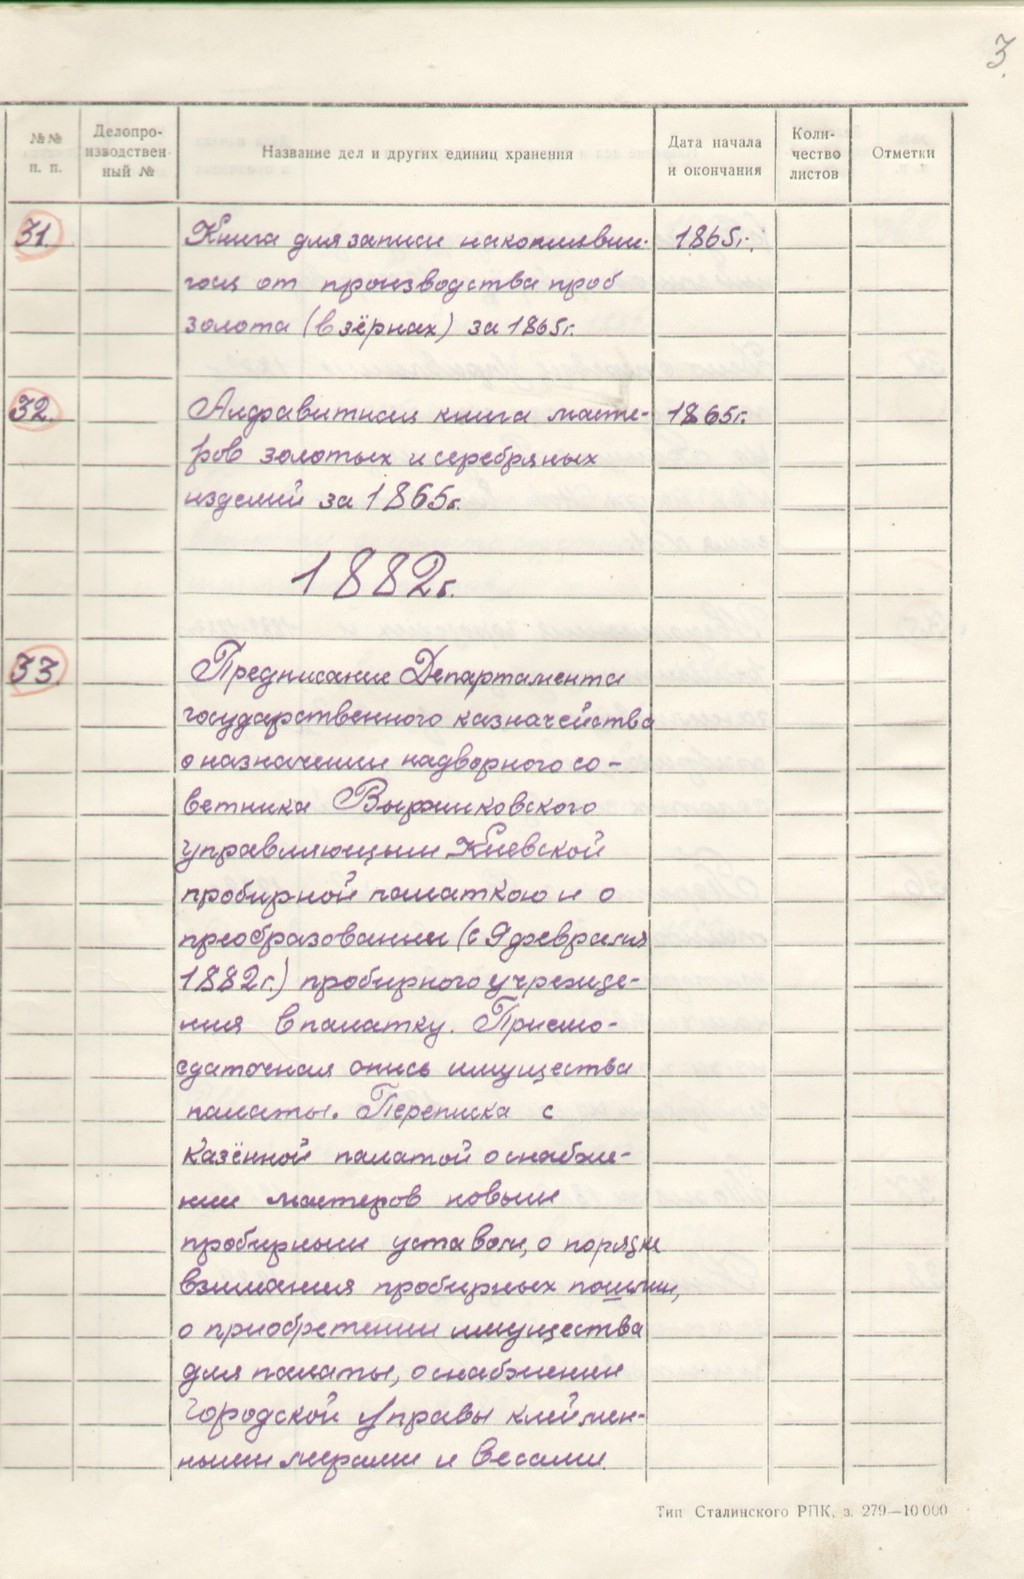 3.
№№ п. п.
Делопро-
изводствен
ный №
Название дел и других единиц хранения
Дата начала
и окончания
Коли-
чество
листов
Отметки
31. Книга для записи накопивши- 1865г.
гося от производства проб
золота (в зёрнах) за 1865г.
32. Алфавитная книга масте- 1865г.
ров золотых и серебряных
изделий за 1865г.
1882г.
33. Предписание Департамента
государственного казначейства
о назначении надворного со-
ветника
управляющим Киевской
пробирной палаткою и о
преобразовании (с 9 февраля
1882г.) пробирного учрежде-
ния в палатку. Приемо-
сдаточная опись имущества
палаты. Переписка с
Казённой палатой о снабже-
нии мастеров новыми
пробирными уставами, о порядке
взимания пробирных пошлин,
о приобретении имущества
для палаты, о снабжении
Городской Управы клеймен-
ными мерами и весами
Тип Сталинского РПК, з. 279—10 000